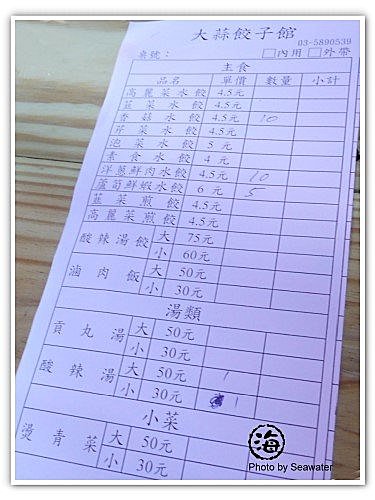 大蒜餃子館
03-5890539
桌號： □內用 □外帶
主食
品名 單價 數量 小計
高麗菜水餃 4.5元
韮菜水餃 4.5元
香菇水餃 4.5元 10
芹菜水餃 4.5元
泡菜水餃 5元
素食水餃 4元
洋蔥鮮肉水餃 4.5元 10
蘆筍鮮蝦水餃 6元 5
韮菜煎餃 4.5元
高麗菜煎餃 4.5元
酸辣湯餃 大 75元
小 60元
滷肉飯 大 50元
小 30元
湯類
貢丸湯 大 50元
小 30元
酸辣湯 大 50元 1
小 30元 1
小菜
燙青菜 大 50元
小 30元
海
Photo by Seawater